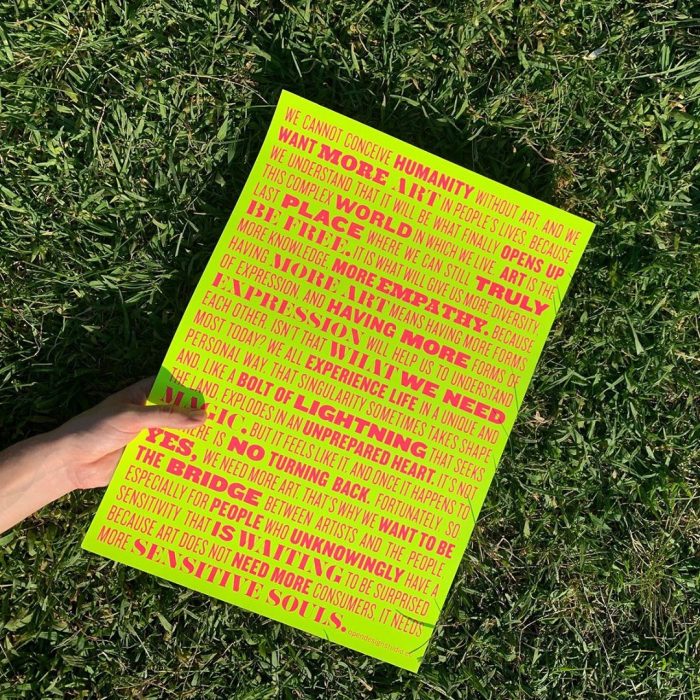 WE CANNOT CONCEIVE HUMANITY WITHOUT ART, AND WE
WANT MORE ART IN PEOPLE'S LIVES, BECAUSE
WE UNDERSTAND THAT IT WILL BE WHAT FINALLY OPENS UP
THIS COMPLEX WORLD IN WHICH WE LIVE. ART IS THE
LAST PLACE WHERE WE CAN STILL TRULY
BE FREE. IT IS WHAT WILL GIVE US MORE DIVERSITY,
MORE KNOWLEDGE, MORE EMPATHY. BECAUSE
HAVING MORE ART MEANS HAVING MORE FORMS
OF EXPRESSION, AND HAVING MORE FORMS OF
EXPRESSION WILL HELP US TO UNDERSTAND
EACH OTHER. ISN'T THAT WHAT WE NEED
MOST TODAY? WE ALL EXPERIENCE LIFE IN A UNIQUE AND
PERSONAL WAY. THAT SINGULARITY SOMETIMES TAKES SHAPE
AND, LIKE A BOLT OF LIGHTNING THAT SEEKS
THE LAND, EXPLODES IN AN UNPREPARED HEART. IT'S NOT
MAGIC. BUT IT FEELS LIKE IT. AND ONCE IT HAPPENS TO
THERE IS NO TURNING BACK. FORTUNATELY. SO,
YES, WE NEED MORE ART. THAT'S WHY WE WANT TO BE
THE BRIDGE BETWEEN ARTISTS AND THE PEOPLE,
ESPECIALLY FOR PEOPLE WHO UNKNOWINGLY HAVE A
SENSITIVITY THAT IS WAITING TO BE SURPRISED
BECAUSE ART DOES NOT NEED MORE CONSUMERS, IT NEEDS
MORE SENSITIVE SOULS.